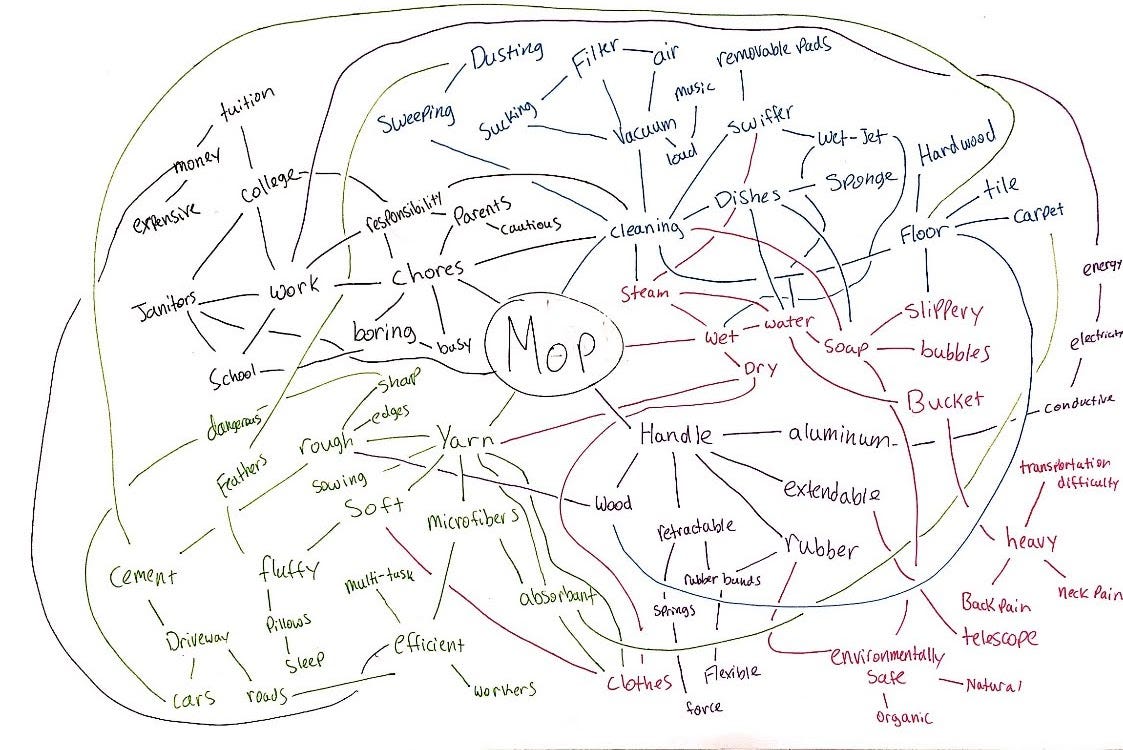 Dusting
Filter
air
removable Pads
Sweeping
Sucking
Vacuum
music
loud
Swiffer
Wet-Jet
Hardwood
tuition
money
expensive
college
responsibility
Parents
cautious
cleaning
Dishes
Sponge
Floor
tile
carpet
Janitors
work
chores
boring
busy
School
Mop
Steam
Wet
water
Soap
Slippery
bubbles
Dry
Bucket
energy
electricity
conductive
dangerous
sharp
edges
rough
Feathers
Yarn
sowing
Soft
microfibers
Handle
aluminum
Wood
extendable
retractable
rubber
rubber bands
springs
Flexible
force
transportation
difficulty
heavy
Back Pain
neck Pain
telescope
environmentally
Safe
Natural
organic
Cement
fluffy
Pillows
Sleep
multi-task
absorbant
efficient
workers
Clothes
Driveway
cars
roads